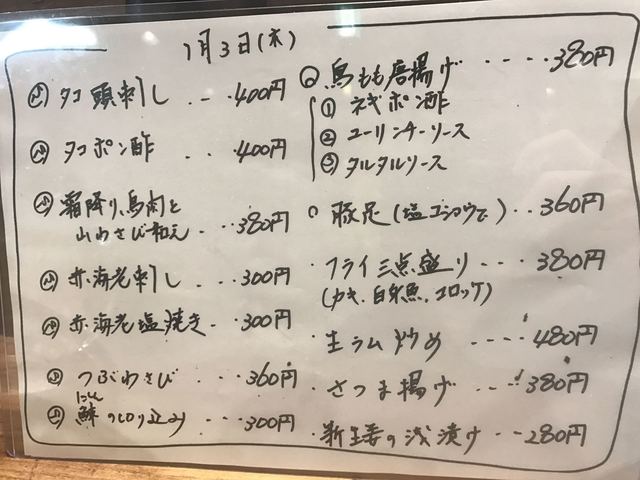 7月3日(木)
タコ頭刺し ... 400円
タコポン酢 ... 400円
霜降り鳥肉と
山わさび和え ... 380円
赤海老刺し ... 300円
赤海老塩焼き ... 300円
つぶわさび ... 360円
にしん
鯡の切り込み ... 300円
鳥もも唐揚げ .... 380円
① ネギポン酢
② ユーリンチーソース
③ タルタルソース
豚足(塩コショウで) .. 360円
フライ三点盛り ... 380円
(カキ、白身魚、コロッケ)
生ラム炒め .... 480円
さつま揚げ .... 380円
新生姜の浅漬け -- 280円